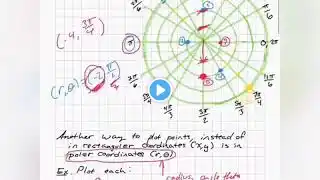 (-4, 3π/4)
(r, θ) (-2, π/2)
π
π/6
0, 2π
11π/6
7π/4
5π/3
3π/2
4π/3
5π/4
Another way to plot points, instead of
in rectangular coordinates (x,y) is in
polar coordinates (r, θ)
Ex. Plot each:
radius angle theta